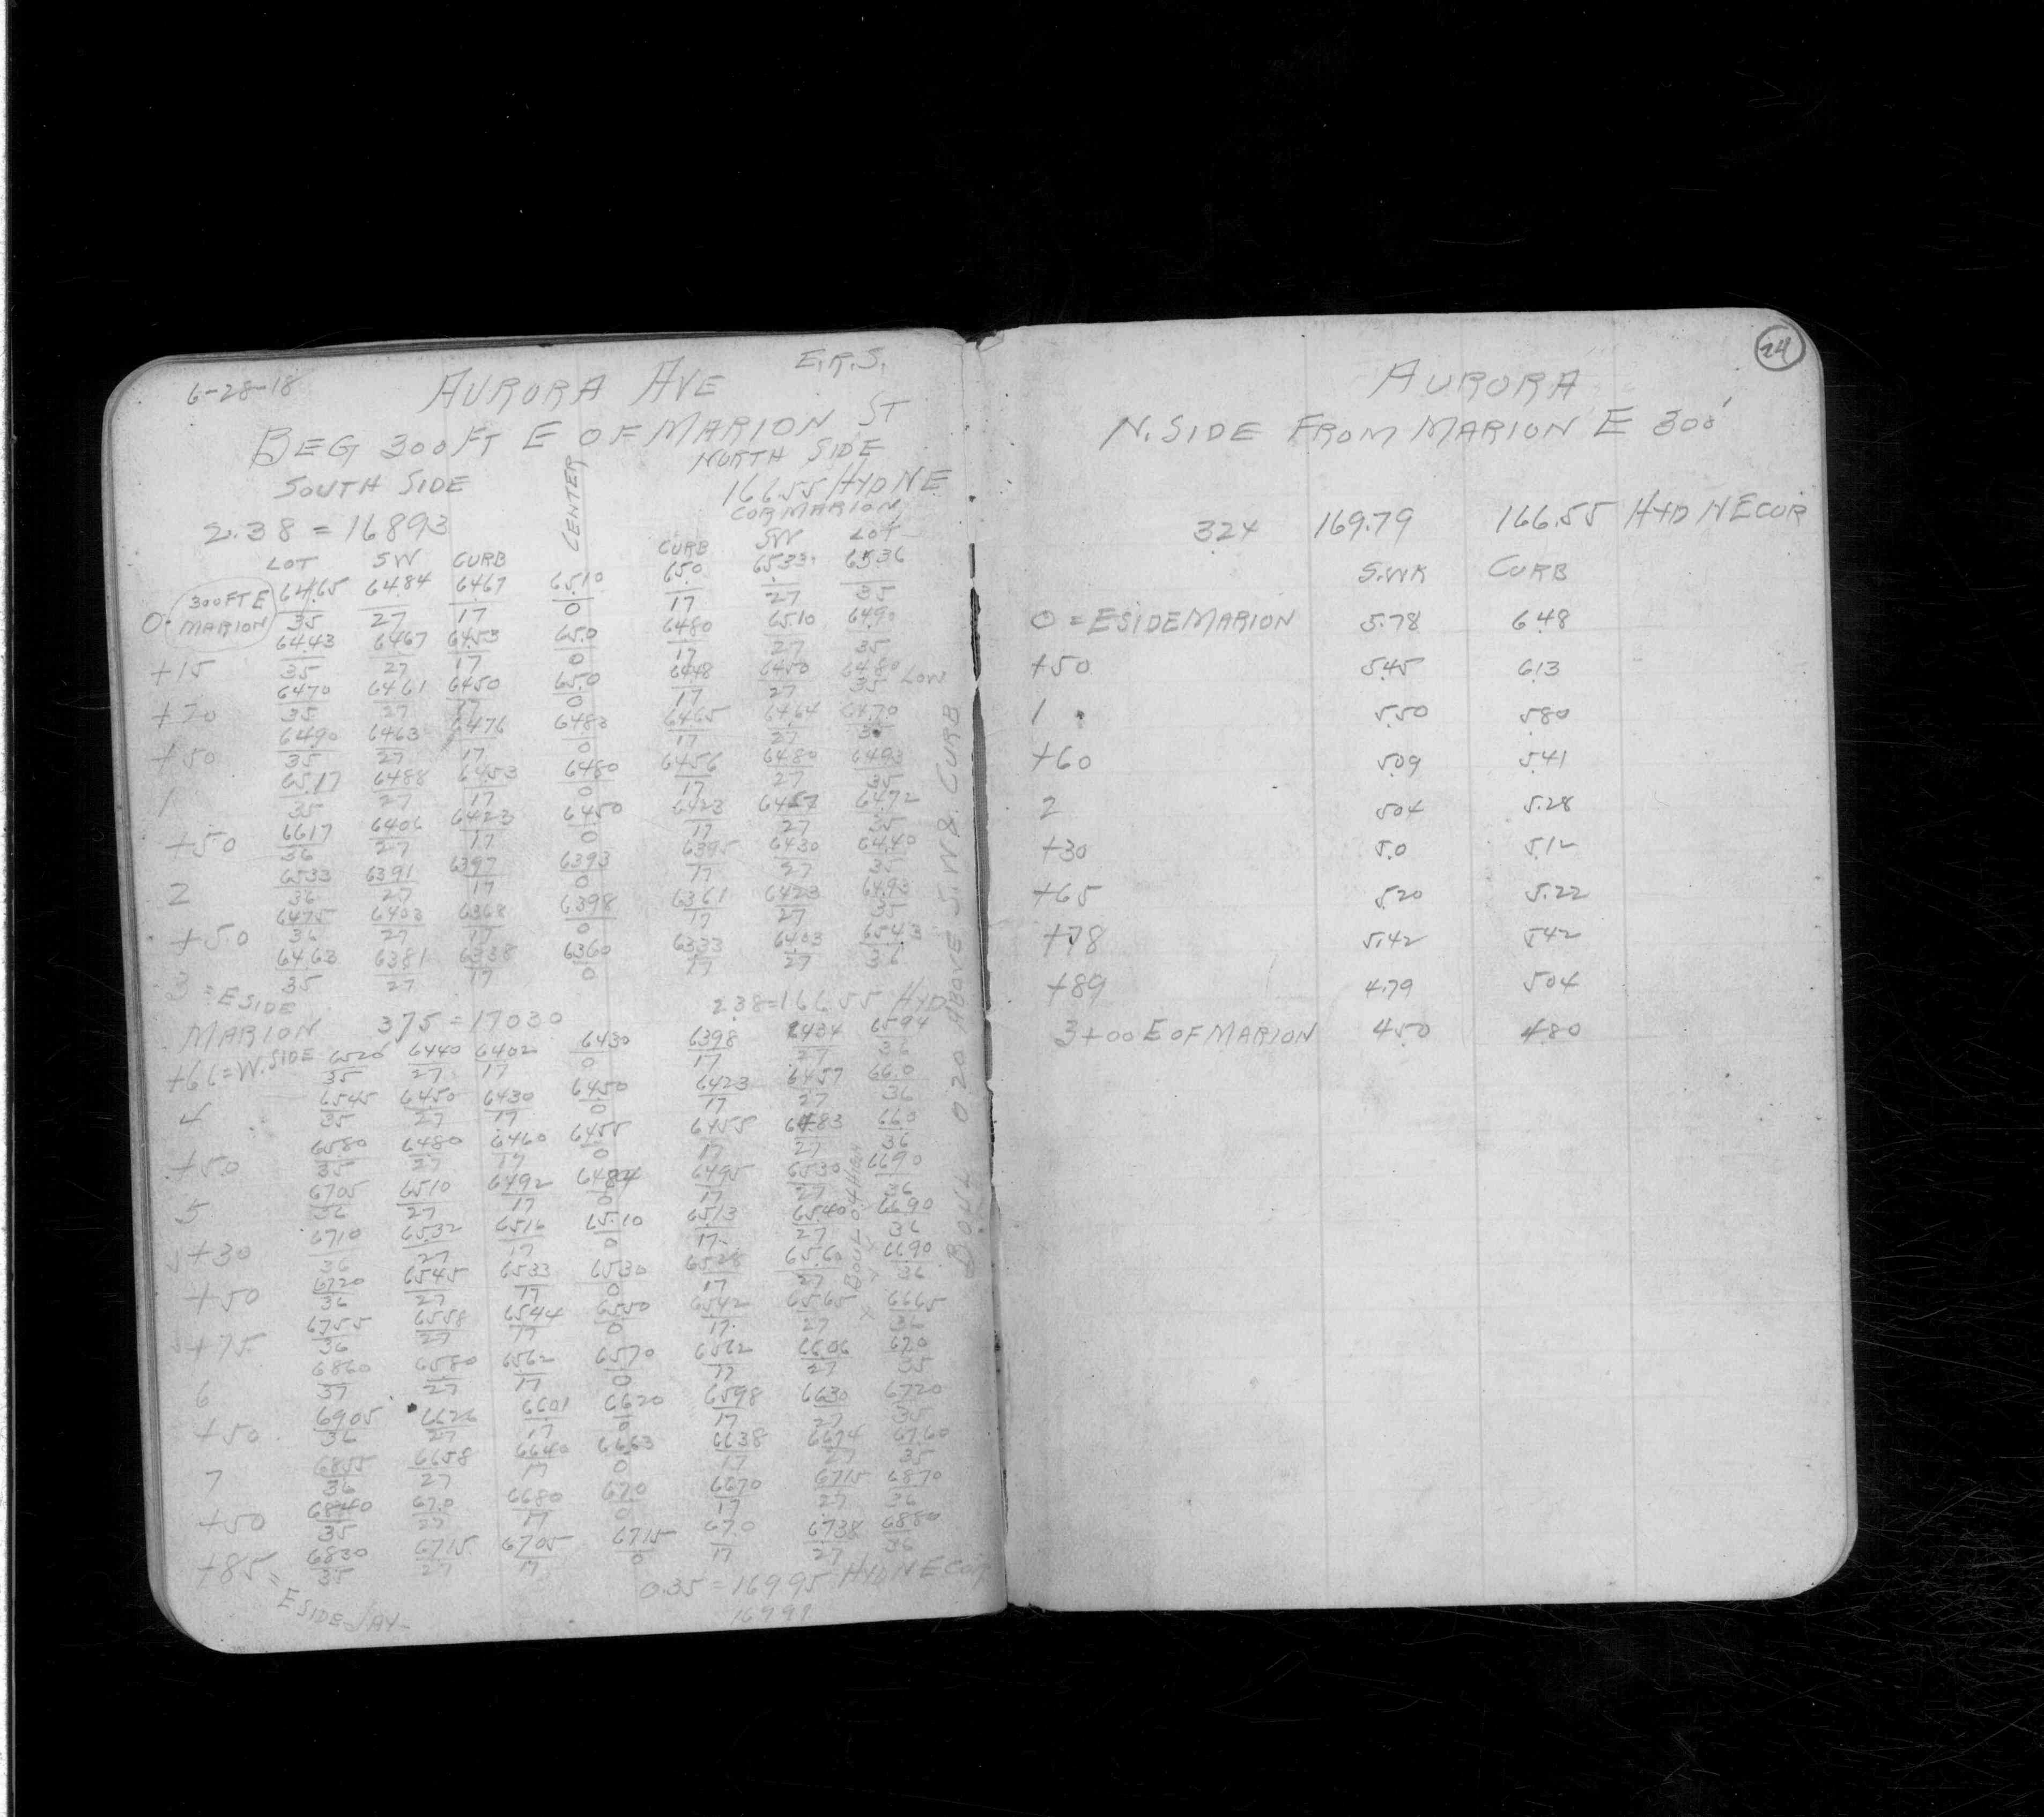 6-28-18 AURORA AVE E.R.S.
BEG 300 FT E OF MARION ST
SOUTH SIDE CENTER NORTH SIDE
2.38 = 16893 16655 HYD NE
COR MARION
LOT SW CURB CURB SW LOT
0. 300 FT E MARION 6465 6484 6467 6510 650 6533 6536
35 27 17 0 17 27 35
+15 6443 6467 6453 650 6480 6510 6490
35 27 17 0 17 27 35
+70 6470 6461 6450 650 6448 6450 6480 LOW
35 27 17 0 17 27 35
+50 6490 6463 6476 6483 6465 6464 6470
35 27 17 0 17 27
1 6517 6488 6453 6480 6456 6480 6493
35 27 17 0 17 27 35
+50 6617 6406 6423 6450 6423 6457 6472
36 27 17 0 17 27 35
2 6533 6391 6397 6393 6395 6430 6440
36 27 17 0 17 27 35
+50 6475 6403 6368 6398 6361 6423 6493
36 27 17 0 17 27 35
3 = E SIDE MARION 6463 6381 6338 6360 6333 6403 6543
35 27 17 0 17 27 36
375 = 17030 2.38=166.55 HYD
+66=W. SIDE 6520 6440 6402 6430 6398 6434 6594
35 27 17 0 17 27 36
4 6545 6450 6430 6450 6423 6457 66.0
35 27 17 0 17 27 36
+50 6580 6480 6460 6455 6455 6483 660
35 27 17 0 17 27 36
5 6705 6510 6492 6484 6495 6530 6690
36 27 17 0 17 27 36
+30 6710 6532 6516 65.10 6513 6540 6690
36 27 17 0 17 27 36
+50 6720 6545 6533 6530 6528 6560 6690
36 27 17 0 17 27 36
+75 6755 6558 6544 6550 6542 6565 6665
36 27 17 0 17 27 36
6 6860 6580 6562 6570 6562 6606 670
37 27 17 0 17 27 35
+50 6905 6626 6601 6620 6598 6630 6720
36 27 17 0 17 27 35
7 6855 6658 6640 6663 6638 6674 6760
36 27 17 0 17 27 35
+50 6840 67.0 6680 670 6670 6715 6870
35 27 17 0 17 27 36
+85 = E SIDE JAY 6830 6715 6705 6715 670 6738 6880
35 27 17 0 17 27 36
0.35 = 16995 HYD NE COR
16999
0.20 ABOVE S.W & CURB
24
AURORA
N. SIDE FROM MARION E 300'
324 169.79 166.55 HYD NE COR
S.WK CURB
0 = E SIDE MARION 5.78 648
+50 545 613
1 550 580
+60 509 541
2 504 5.28
+30 5.0 5.12
+65 520 5.22
+78 5.42 542
+89 4.79 504
3+00 E OF MARION 450 480